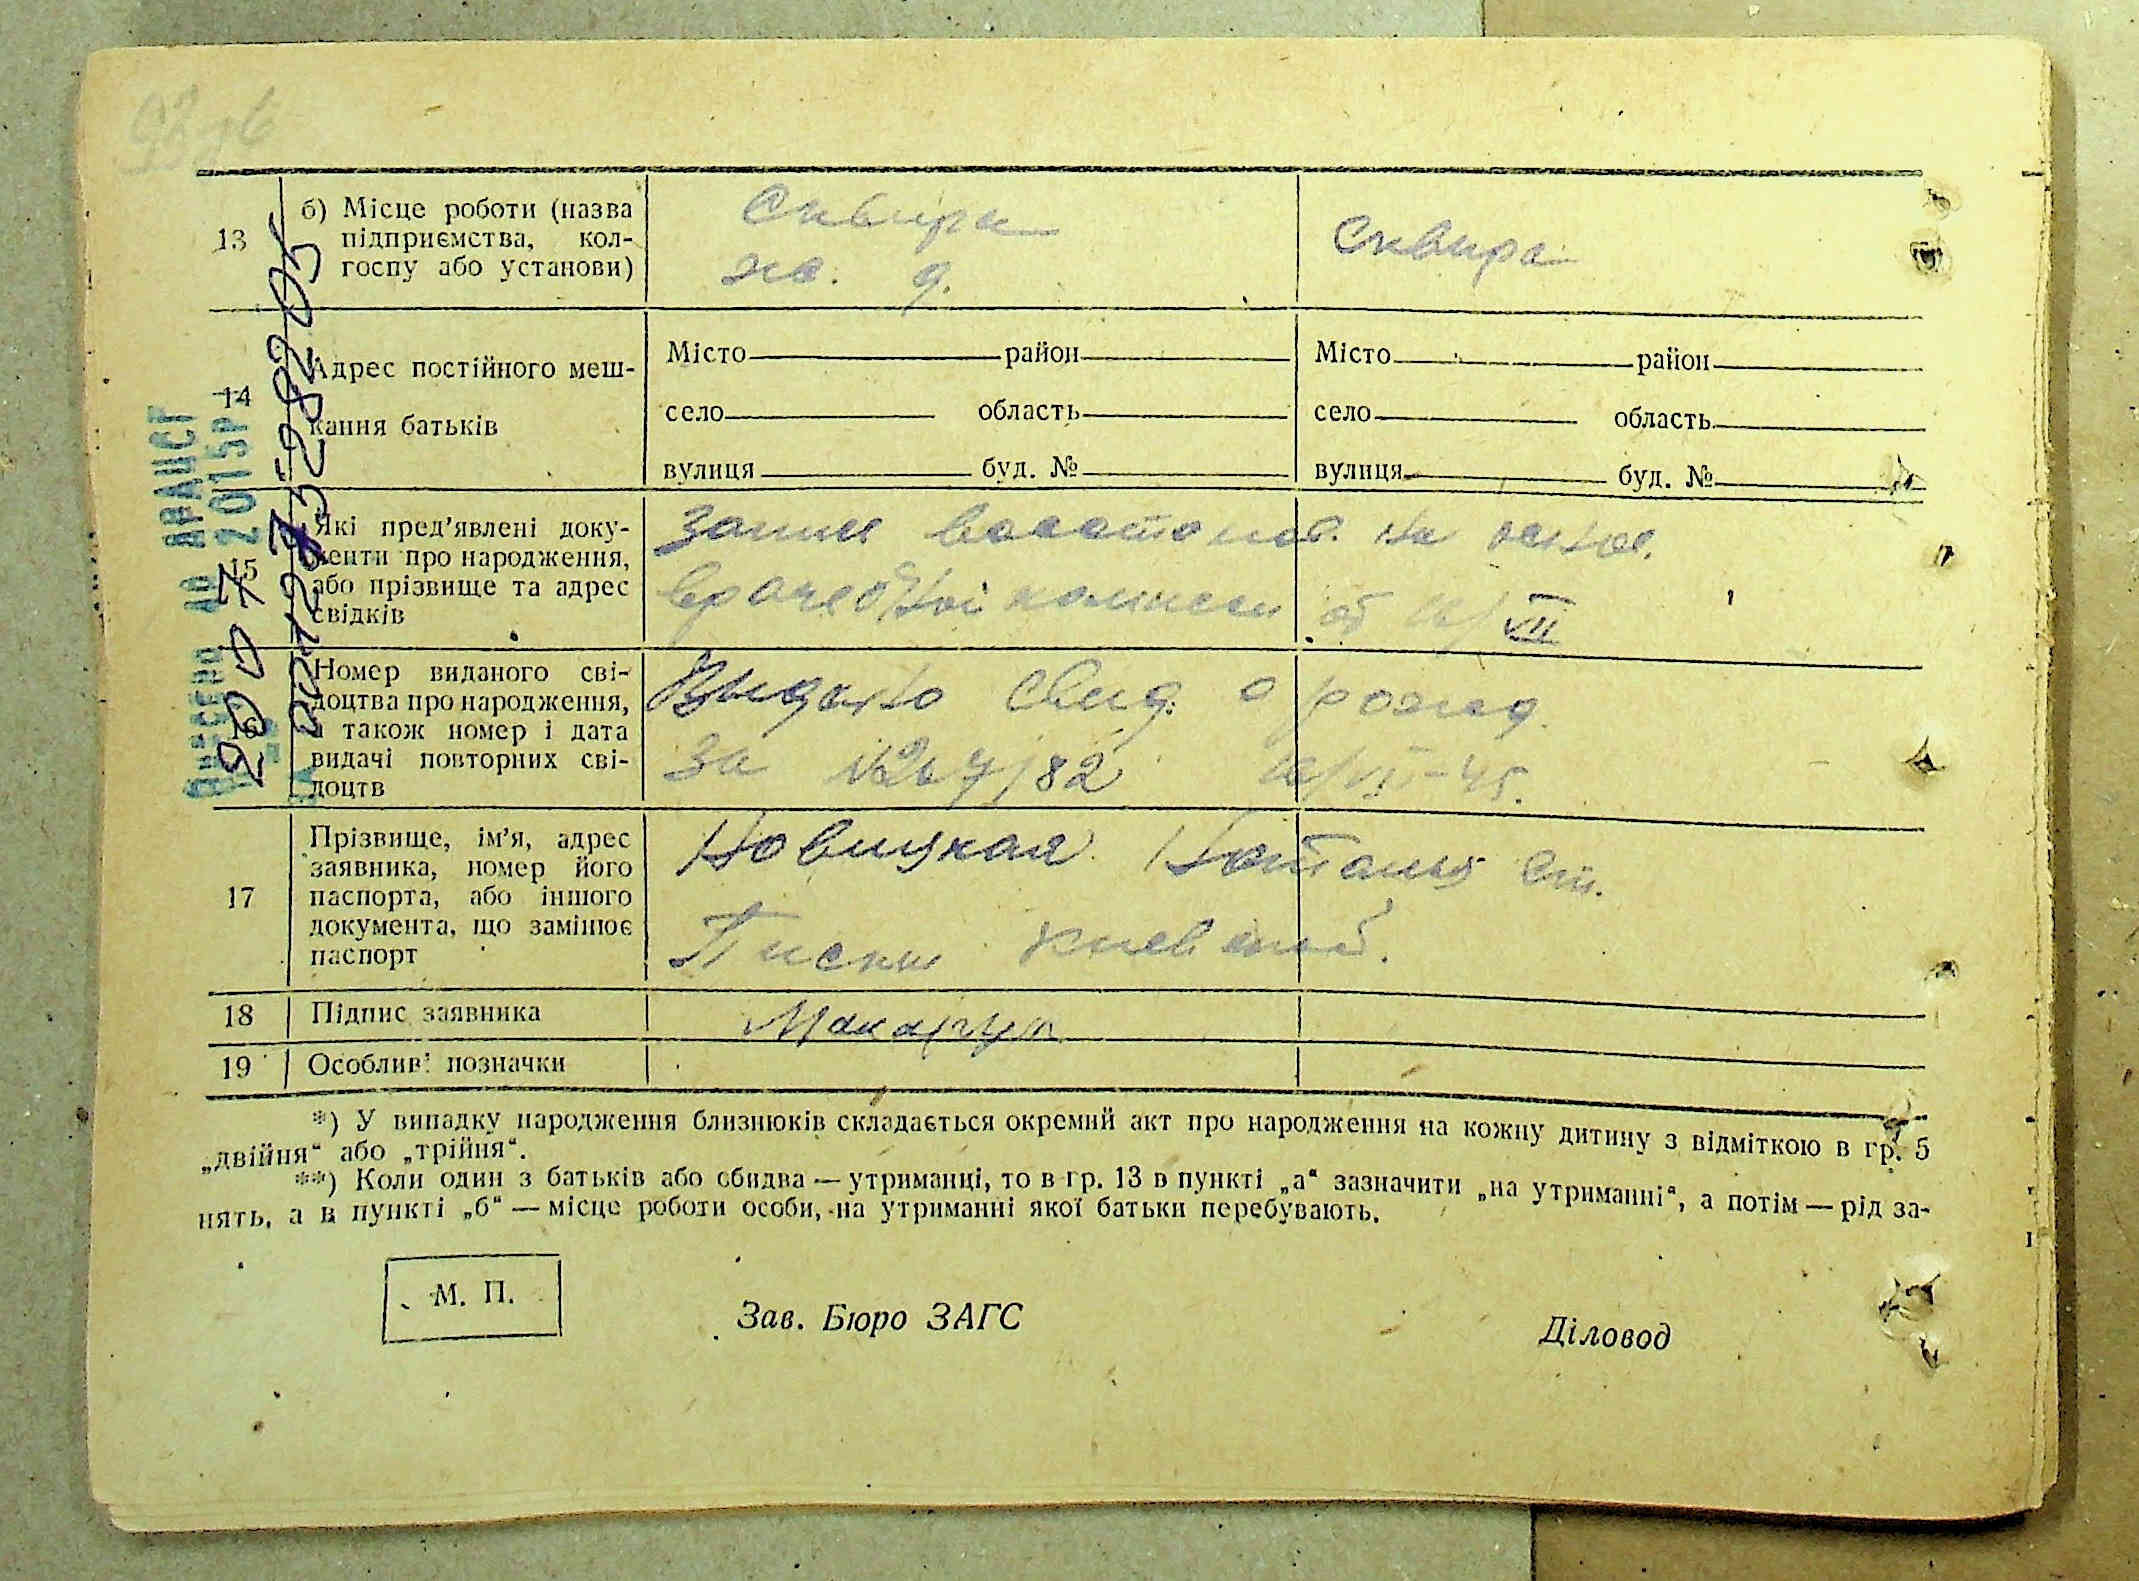 13
б) Місце роботи (назва
підприємства, кол-
госпу або установи)
Сквира
Сквира
14
Адрес постійного меш-
кання батьків
Місто район
село область
вулиця буд. №
Місто район
село область
вулиця буд. №
15
Які пред’явлені доку-
менти про народження,
або прізвище та адрес
свідків
Запись восстанов. на основ.
врачебной комиссии от VII
16
Номер виданого сві-
доцтва про народження,
а також номер і дата
видачі повторних сві-
доцтв
Выдано свид. о рожд.
за
17
Прізвище, ім’я, адрес
заявника, номер його
паспорта, або іншого
документа, що замінює
паспорт
Новицкая Наталья ст.
Писки Киевской.
18
Підпис заявника
Макарчук
19
Особливі позначки
*) У випадку народження близнюків складається окремий акт про народження на кожну дитину з відміткою в гр. 5
„двійня“ або „трійня“.
**) Коли один з батьків або обидва — утриманці, то в гр. 13 в пункті „а“ зазначити „на утриманні“, а потім — рід за-
нять, а в пункті „б“ — місце роботи особи, на утриманні якої батьки перебувають.
М. П.
Зав. Бюро ЗАГС
Діловод
ВНЕСЕНО ДО ДРАЦСГ
2015р